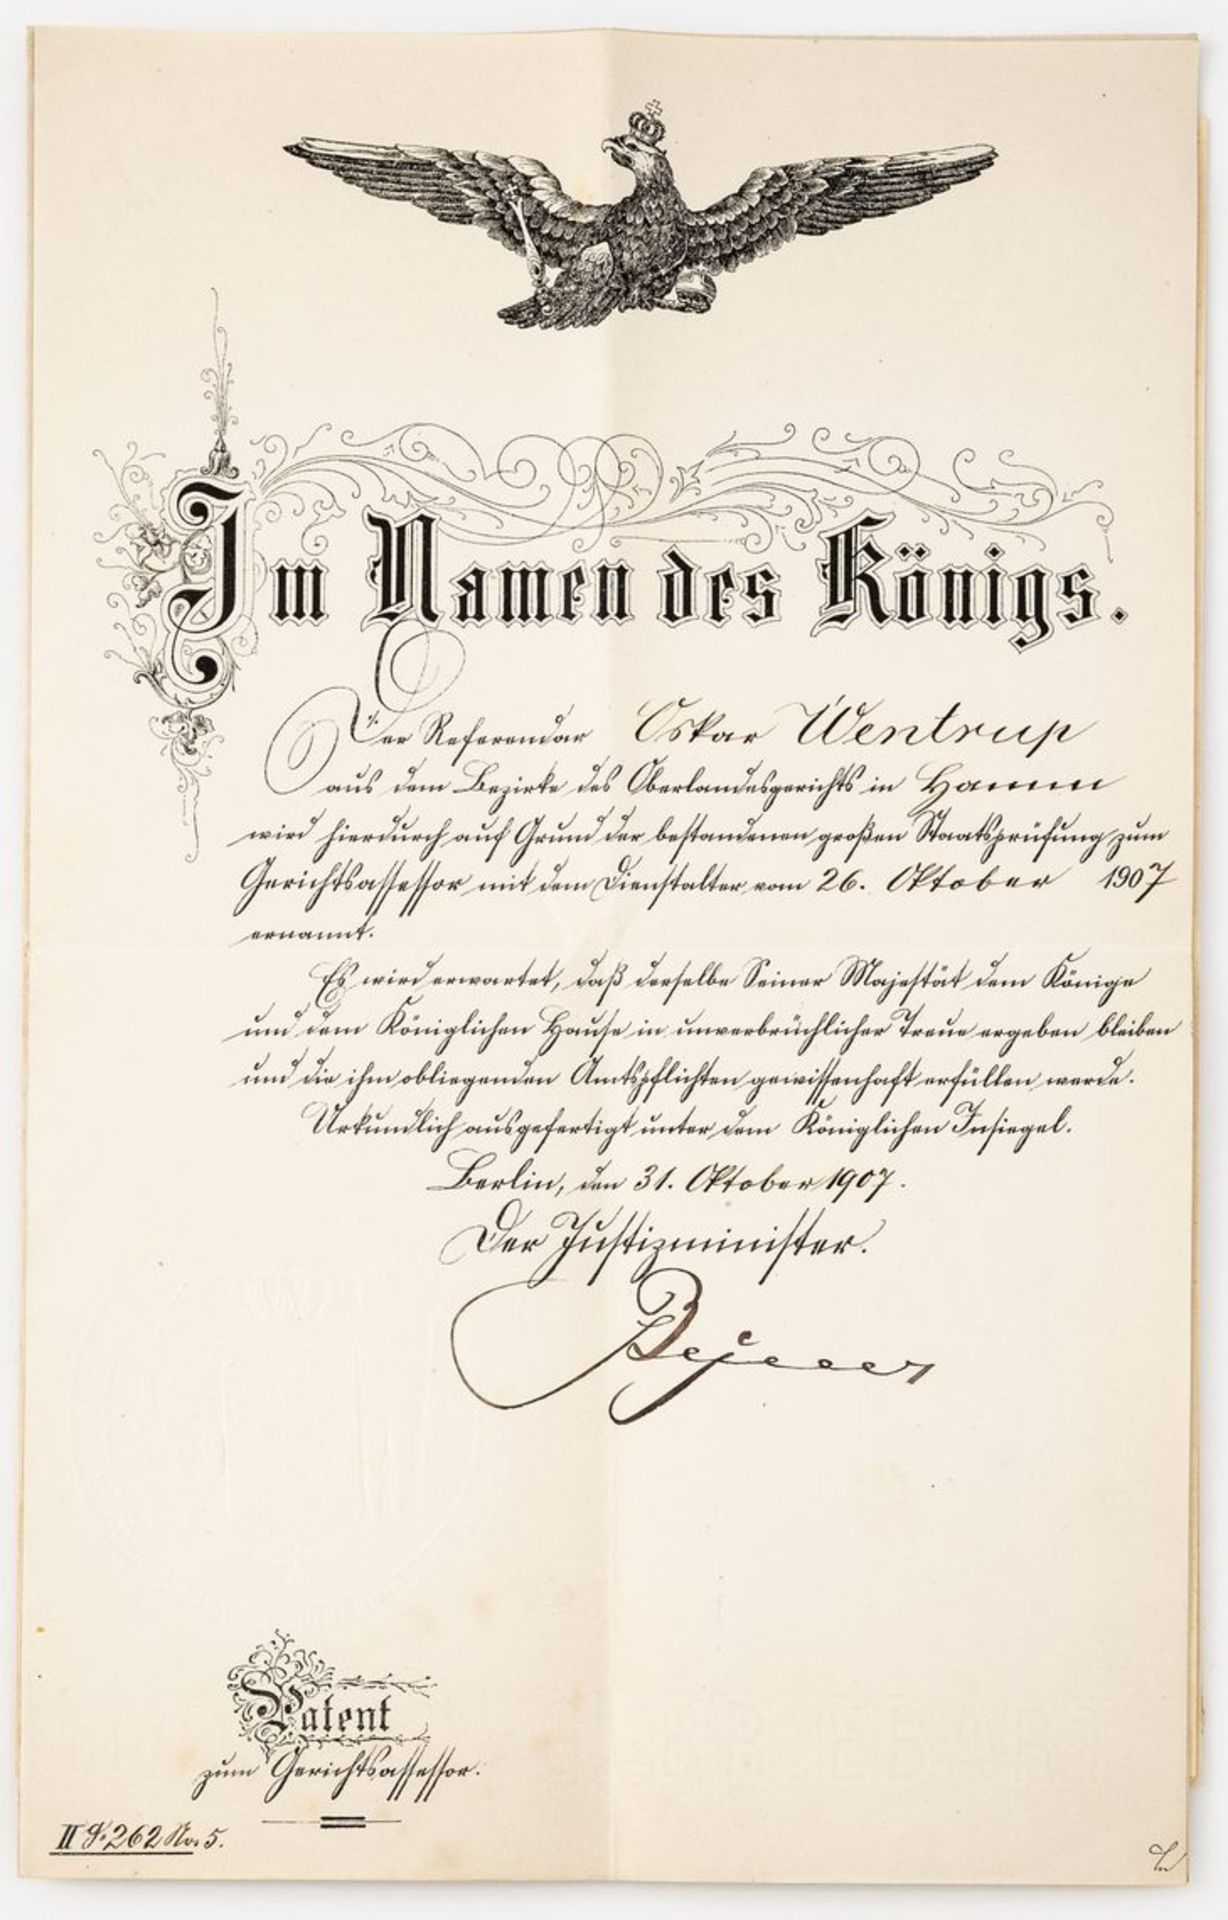 Im Namen des Königs.
Der Referendar Oskar Wentrup
aus dem Bezirke des Oberlandesgerichts in Hamm
wird hierdurch auf Grund der bestandenen großen Staatsprüfung zum
Gerichtsassessor mit dem Dienstalter vom 26. Oktober 1907
ernannt.
Es wird erwartet, daß derselbe Seiner Majestät dem Könige
und dem Königlichen Hause in unverbrüchlicher Treue ergeben bleiben
und die ihm obliegenden Amtspflichten gewissenhaft erfüllen werde.
Urkundlich ausgefertigt unter dem Königlichen Insiegel.
Berlin, den 31. Oktober 1907.
Der Justizminister.
Patent
zum Gerichtsassessor.
II 262 No. 5.